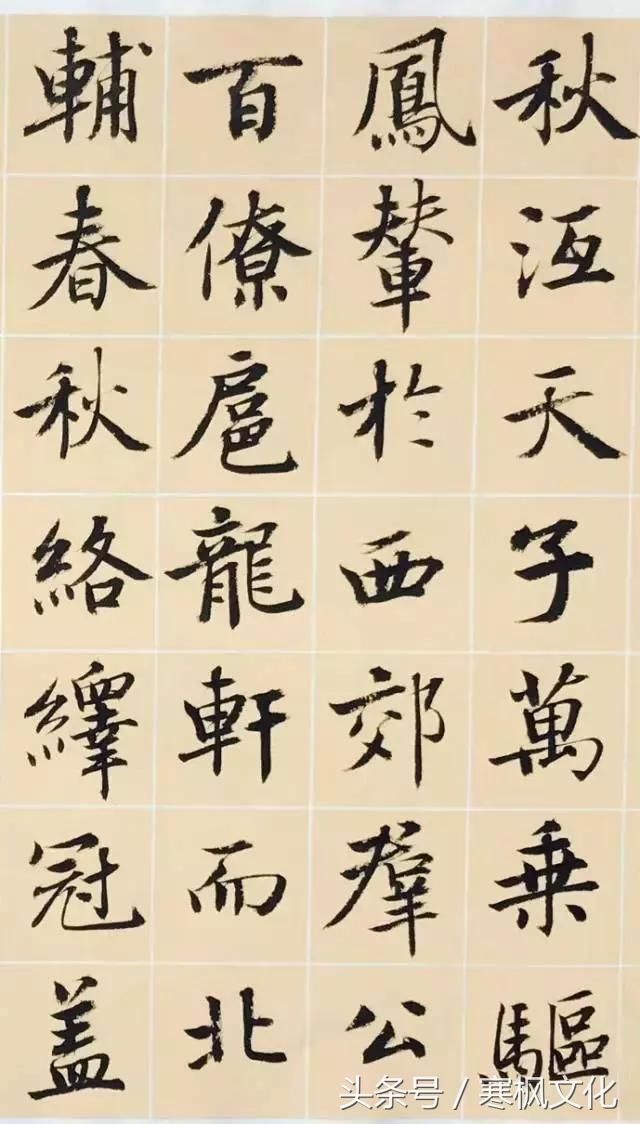 秋沍天子萬乗驅
鳳輦於西郊羣公
百僚扈龍軒而北
輔春秋絡繹冠盖
头条号 / 寒枫文化